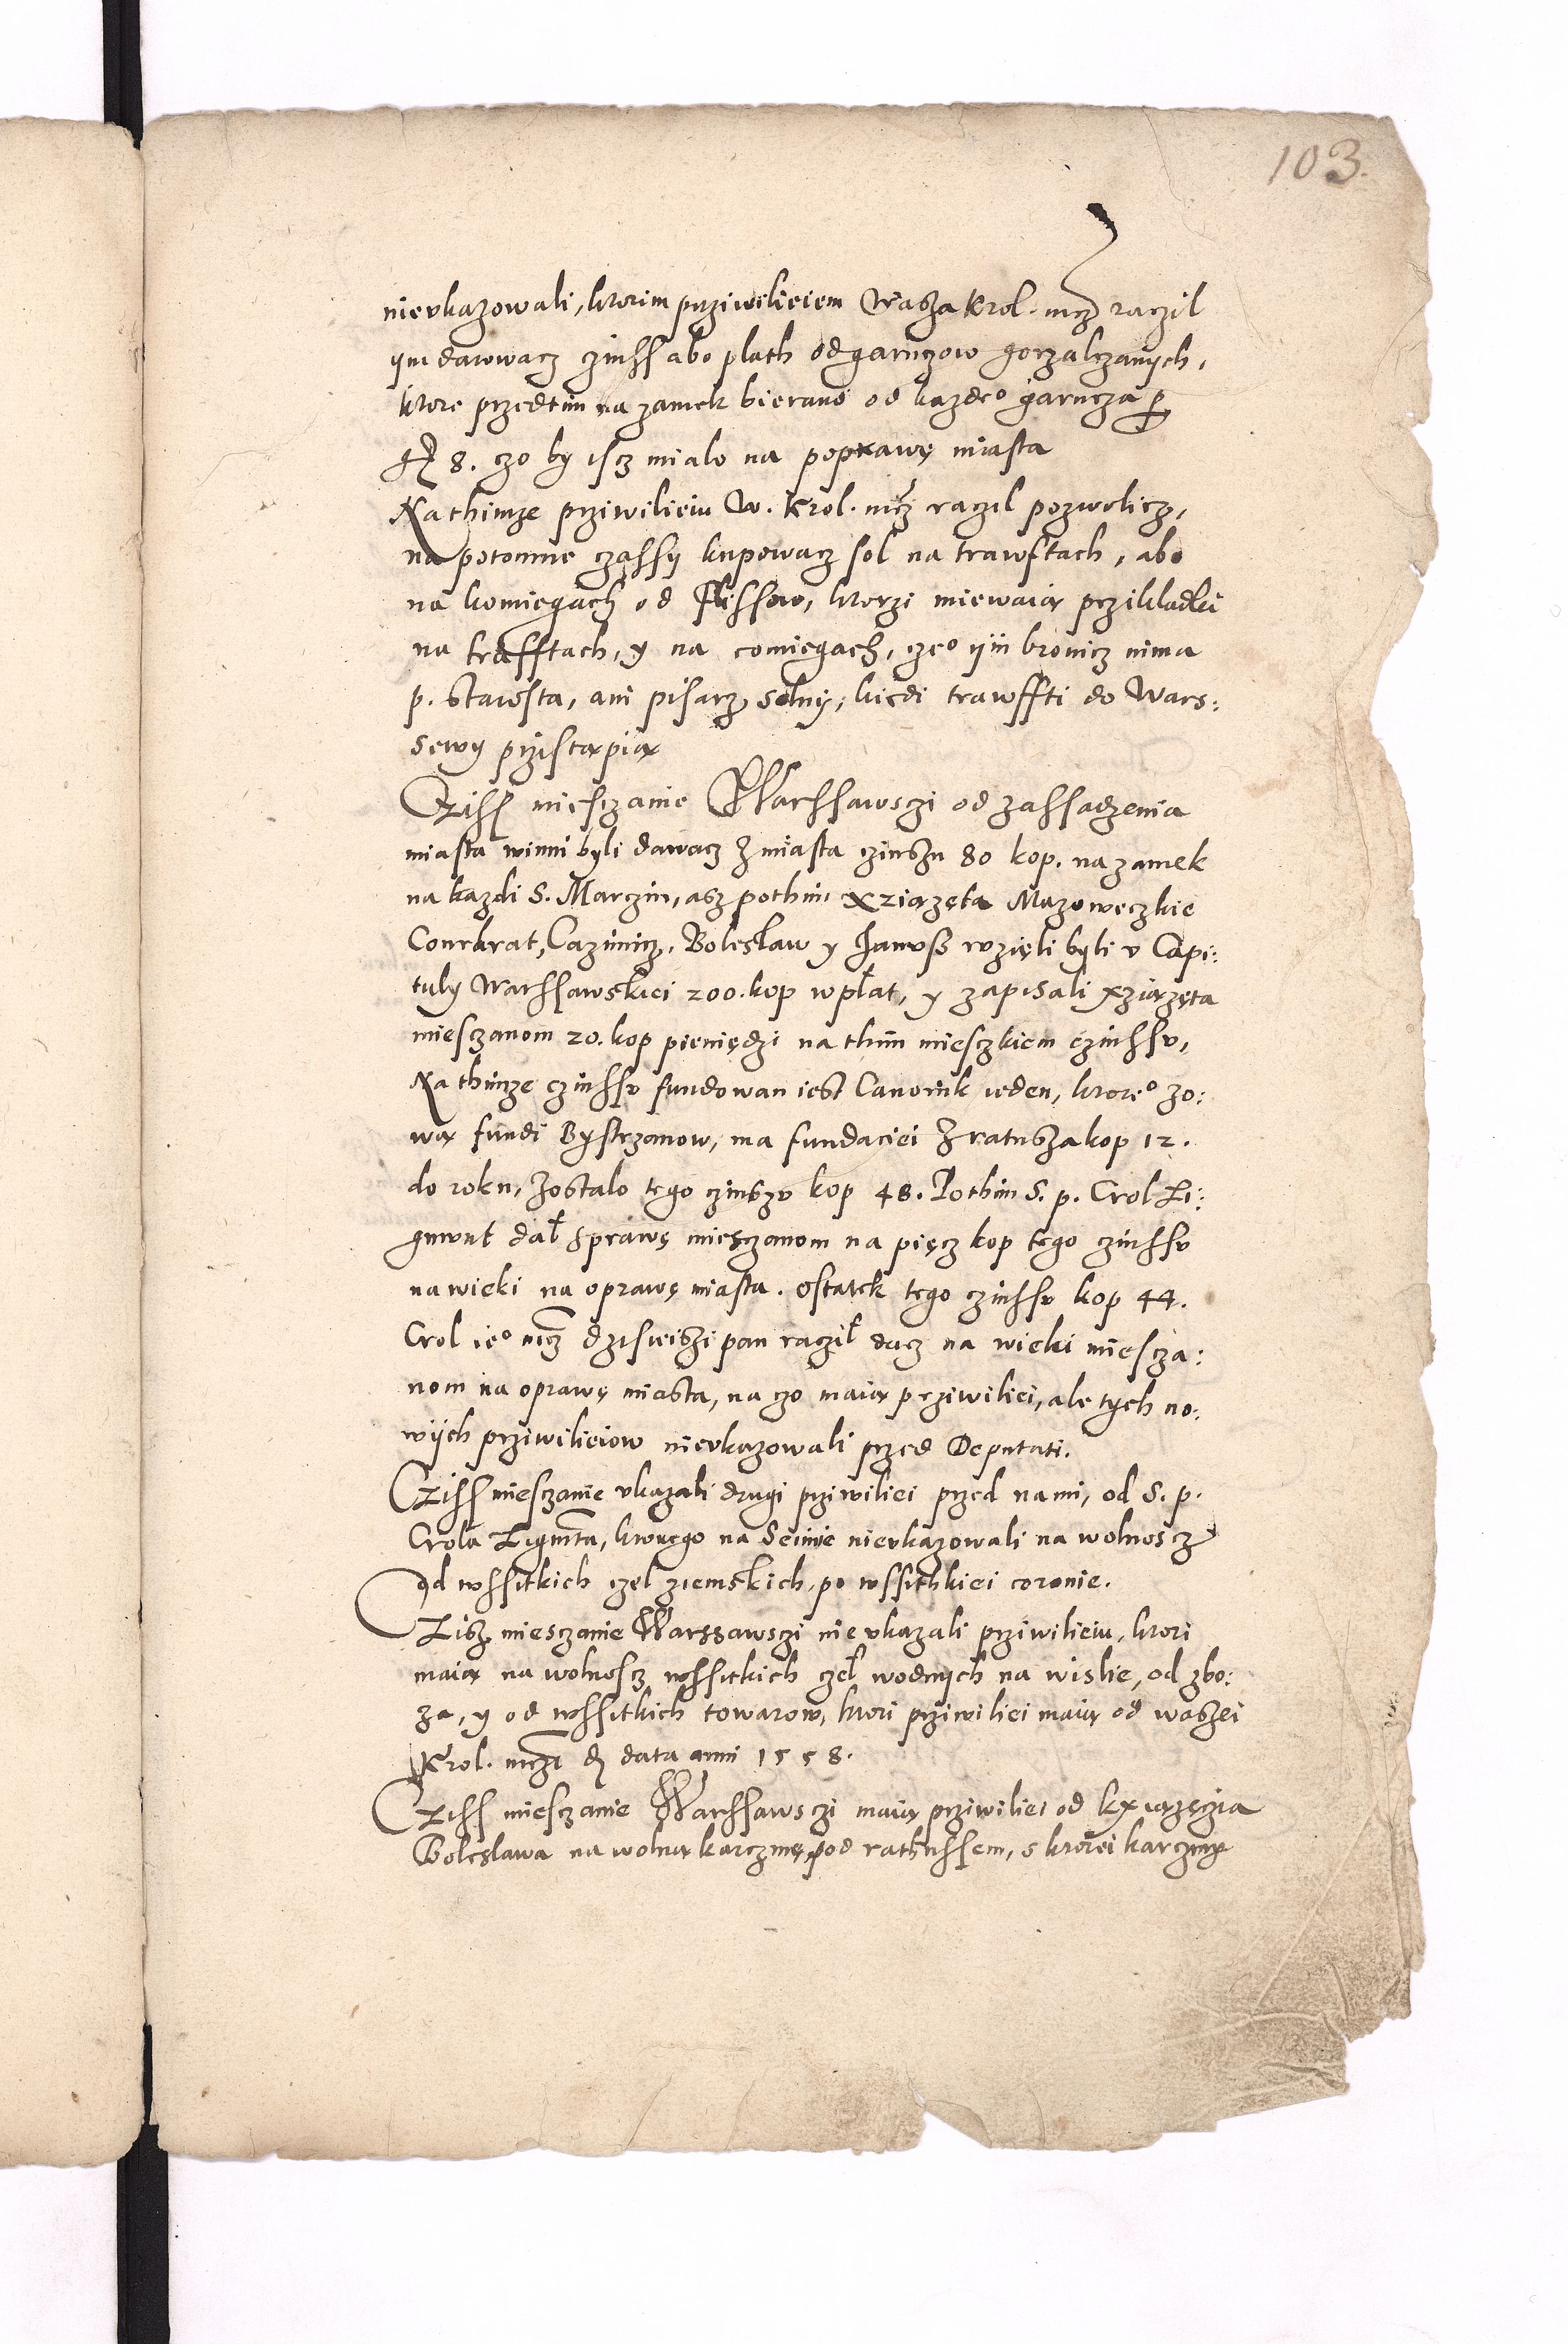 103.
nieukazowali, ktorim prziwilieiem Wasza Krol. mcz raczil
ym darowacz czinss abo plath od garnczow gorzalczanych,
ktore przedtim na zamek bierano od kazdeo garncza per
gr 8. czo by iscz mialo na poprawę miasta
Na thimze prziwilieiu W. Krol. mcz raczil pozwolicz,
na potomne czassy kupowacz sol na trawftach, abo
na komiegach od Flissow, ktorzi miewaią przikładki
na trafftach, y na comiegach, czeo ijm bronicz nima
p. Starosta, ani pisarz solny, kiedi trawffti do Wars:
sewy przistąpią
Cziss miesczanie Warssawsczi od zassadzenia
miasta winni byli dawacz z miasta czinszu 80 kop. na zamek
na kazdi S. Marczin, asz pothim Xziązęta Mazoweczkie
Conrkrat, Cazimirz, Bolesław y Janusz wzięli byli v Capi:
tuly Warssawskiei 200. kop wpłat, y zapisali xziązęta
miesczanom 20. kop pieniędzi na thim miesczkiem czinssv,
Na thimze czinssv fundowan iest Canonik ieden, ktoreo zo:
wą fundi Bystrzanow, ma fundaciei z ratusza kop 12.
do roku, zostalo tego czinszv kop 48. Pothim S. p. Crol Zi:
gmunt dał sprawę miesczanom na pięcz kop tego czinssv
na wieki na oprawę miasta. Ostatek tego czinssv kop 44.
Crol ieo mcz dzisieiszi pan racził dacz na wieki miescza:
nom na oprawę miasta, na czo maią prziwiliei, ale tych no:
wijch prziwilieiow nieukazowali przed Deputati.
Cziss miesczanie vkazali drugi prziwiliei przed nami, od S. p.
Crola Zigmta, ktorego na Seimie nieukazowali na wolnoscz
od wssitkich czel ziemskich, po wssithkiei coronie.
Czisz miesczanie Warszawsczi nie vkazali prziwilieiu, ktori
maią na wolnoscz wssitkich czeł wodnych na wislie, od zbo:
za, y od wssitkich towarow, ktori prziwiliei maią od waszei
Krol. mczi de data anni 1558.
Cziss miesczanie Warssawsczi maią prziwiliei od kxiązęczia
Boleslawa na wolną karczmę pod rathussem, s ktorei karczmy